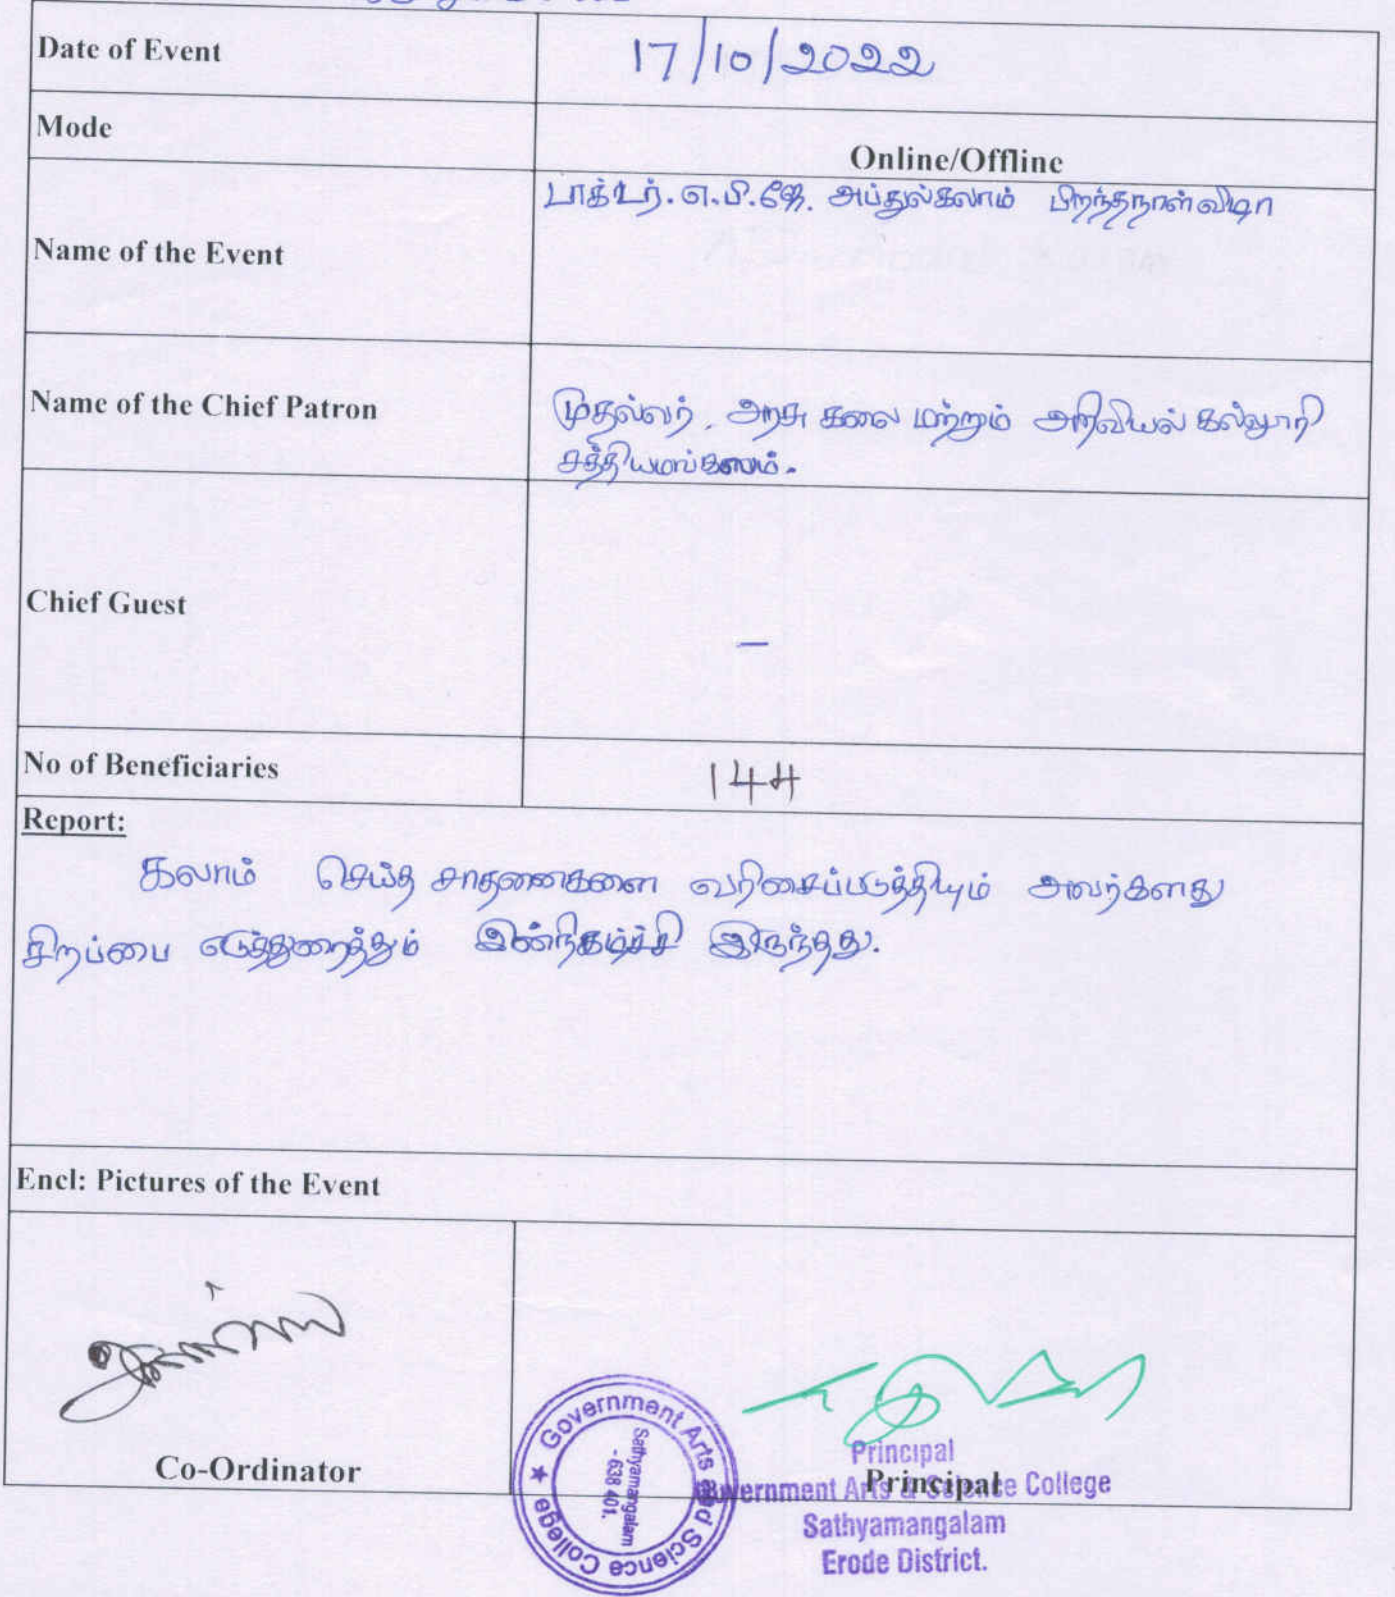 Date of Event 17/10/2022
Mode Online/Offline
Name of the Event டாக்டர். எ.பி.ஜே. அப்துல்கலாம் பிறந்தநாள் விழா
Name of the Chief Patron முதல்வர், அரசு கலை மற்றும் அறிவியல் கல்லூரி
சத்தியமங்கலம்.
Chief Guest –
No of Beneficiaries 144
Report:
கலாம் செய்த சாதனைகளை வரிசைப்படுத்தியும் அவர்களது
சிறப்பை எடுத்துரைத்தும் இந்நிகழ்ச்சி இருந்தது.
Encl: Pictures of the Event
Co-Ordinator
Principal
Principal
Government Arts & Science College
Sathyamangalam
Erode District.
Government Arts and Science College
Sathyamangalam
- 638 401.